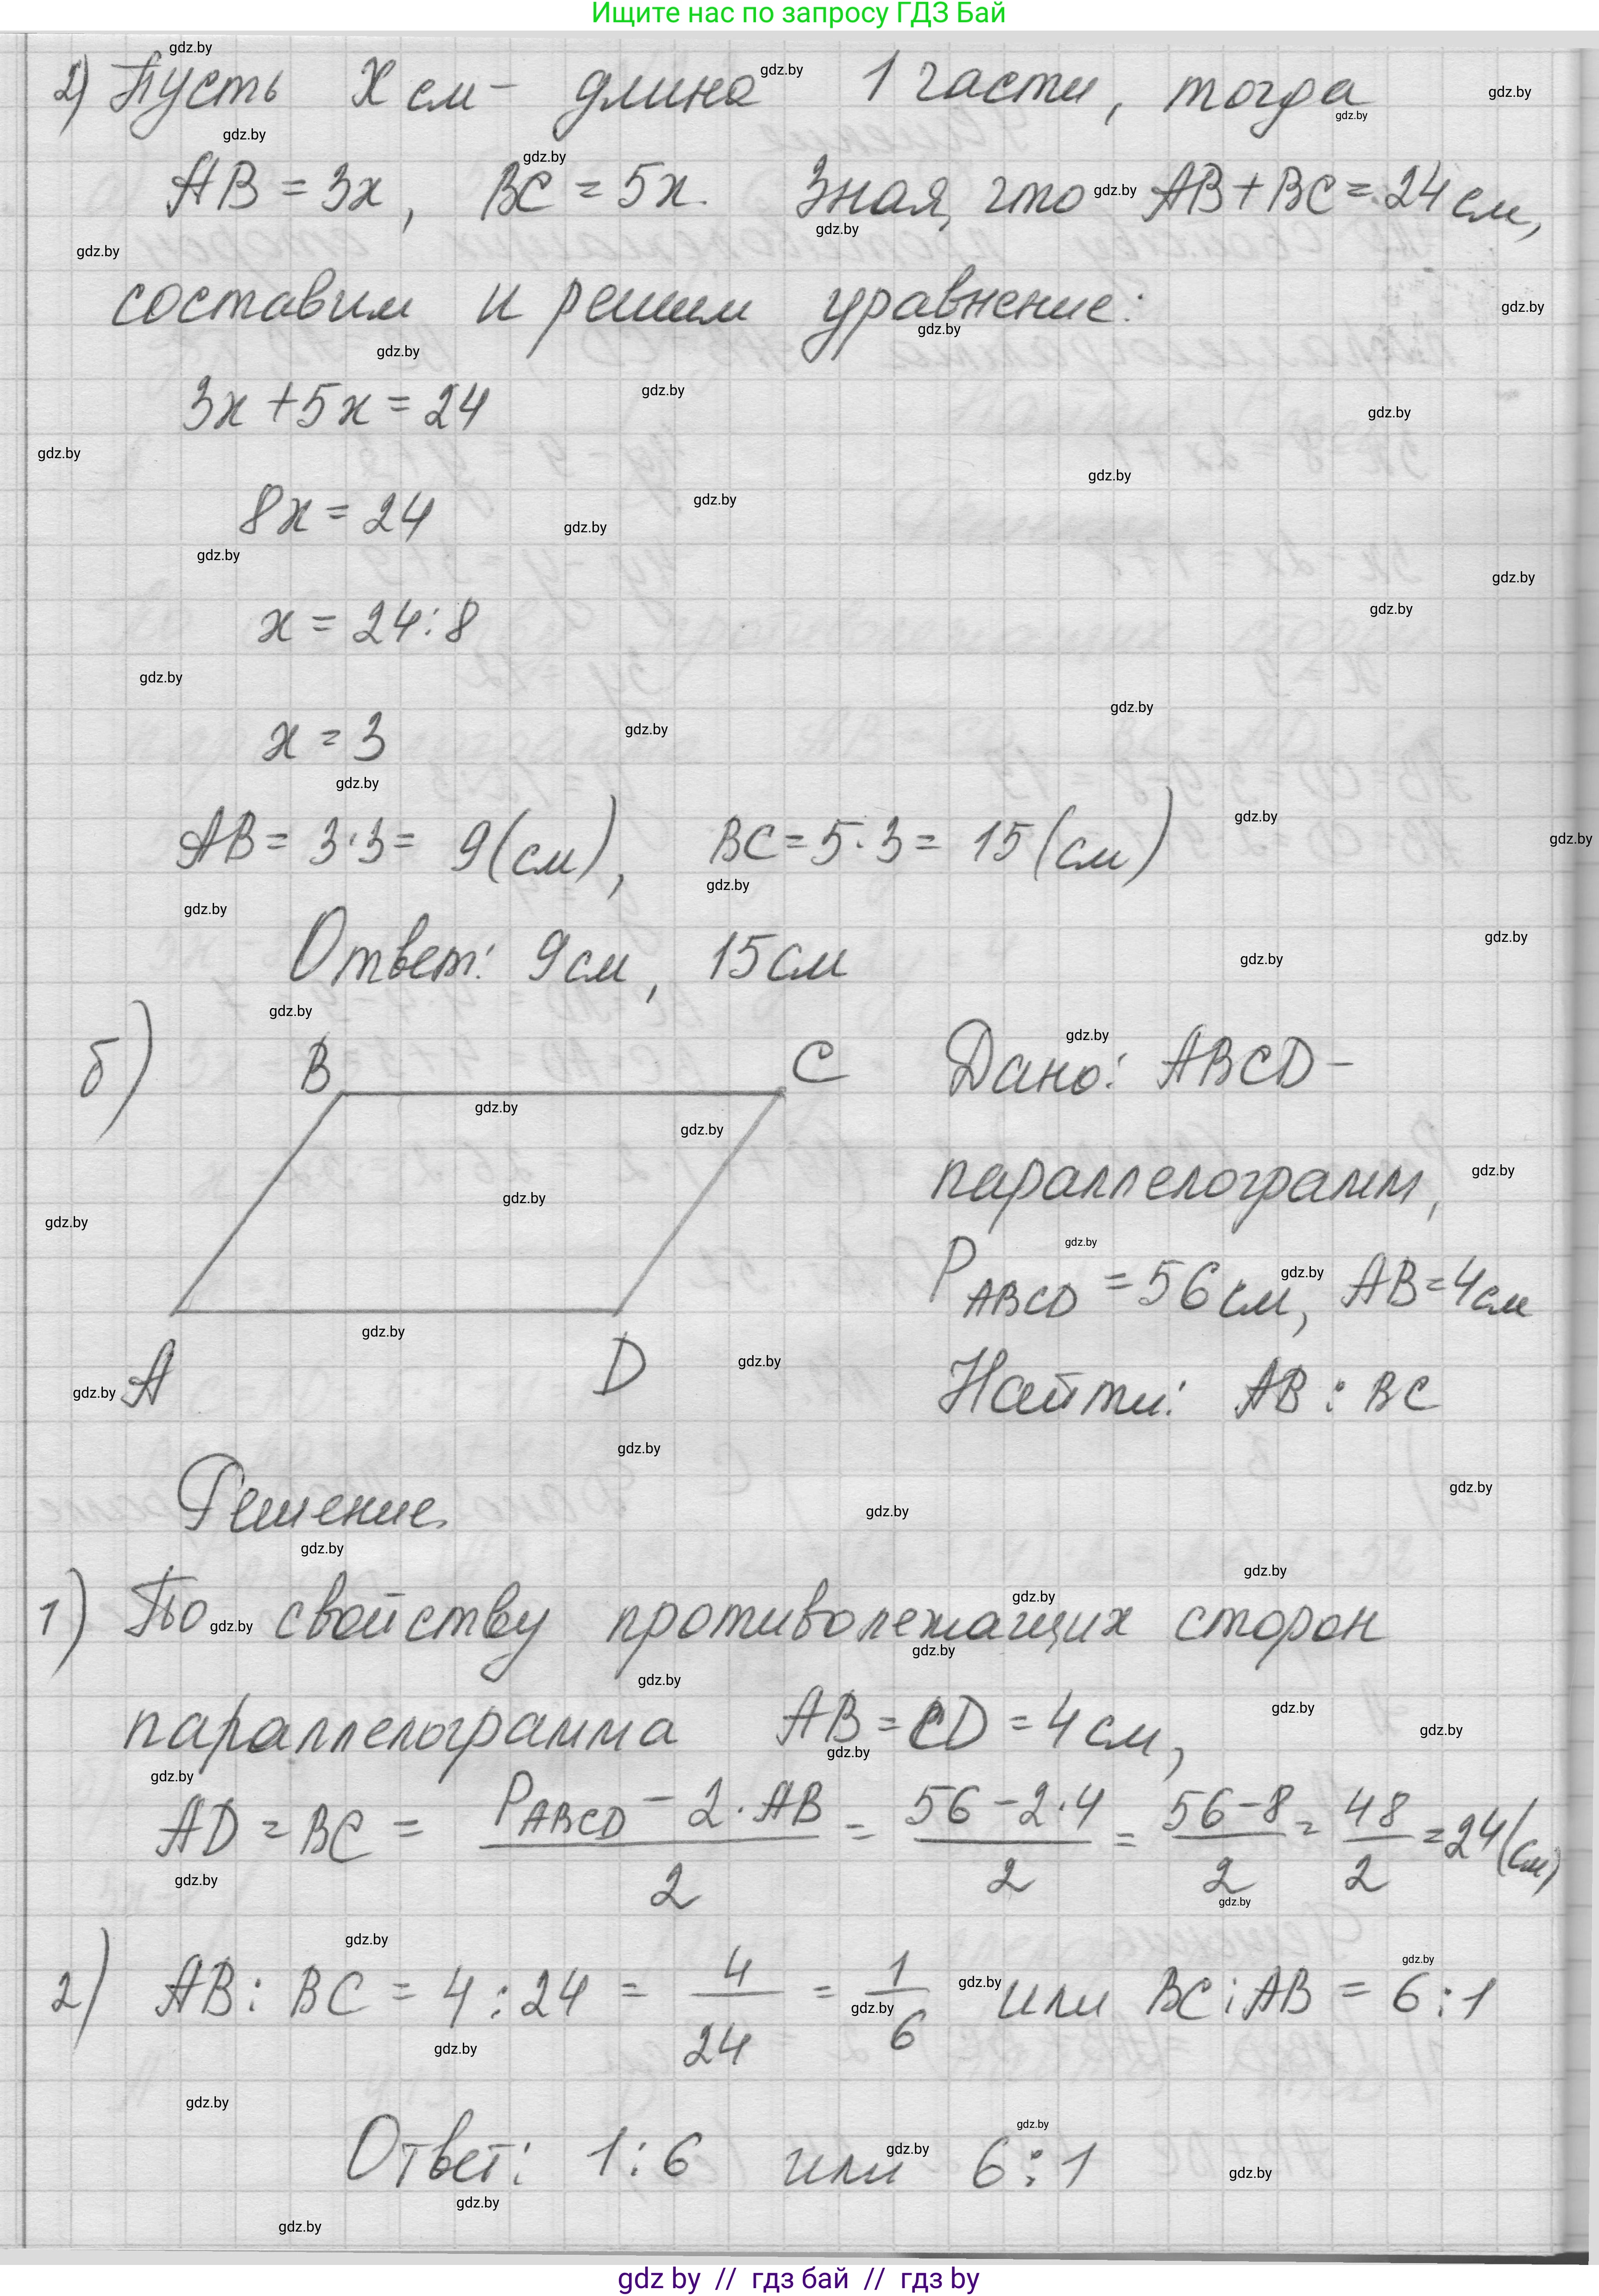 Ищите нас по запросу ГДЗ Бай
2) Пусть X см - длина 1 части, тогда
AB = 3x, BC = 5x. Зная, что AB + BC = 24 см,
составим и решим уравнение:
3x + 5x = 24
8x = 24
x = 24 : 8
x = 3
AB = 3·3 = 9 (см), BC = 5·3 = 15 (см)
Ответ: 9 см, 15 см
б) B C Дано: ABCD -
параллелограмм,
P ABCD = 56 см, AB = 4 см
A D Найти: AB : BC
Решение.
1) По свойству противолежащих сторон
параллелограмма AB = CD = 4 см,
AD = BC = (P ABCD - 2·AB)/2 = (56 - 2·4)/2 = (56 - 8)/2 = 48/2 = 24 (см)
2) AB : BC = 4 : 24 = 4/24 = 1/6 или BC : AB = 6 : 1
Ответ: 1 : 6 или 6 : 1
gdz by // гдз бай // гдз by